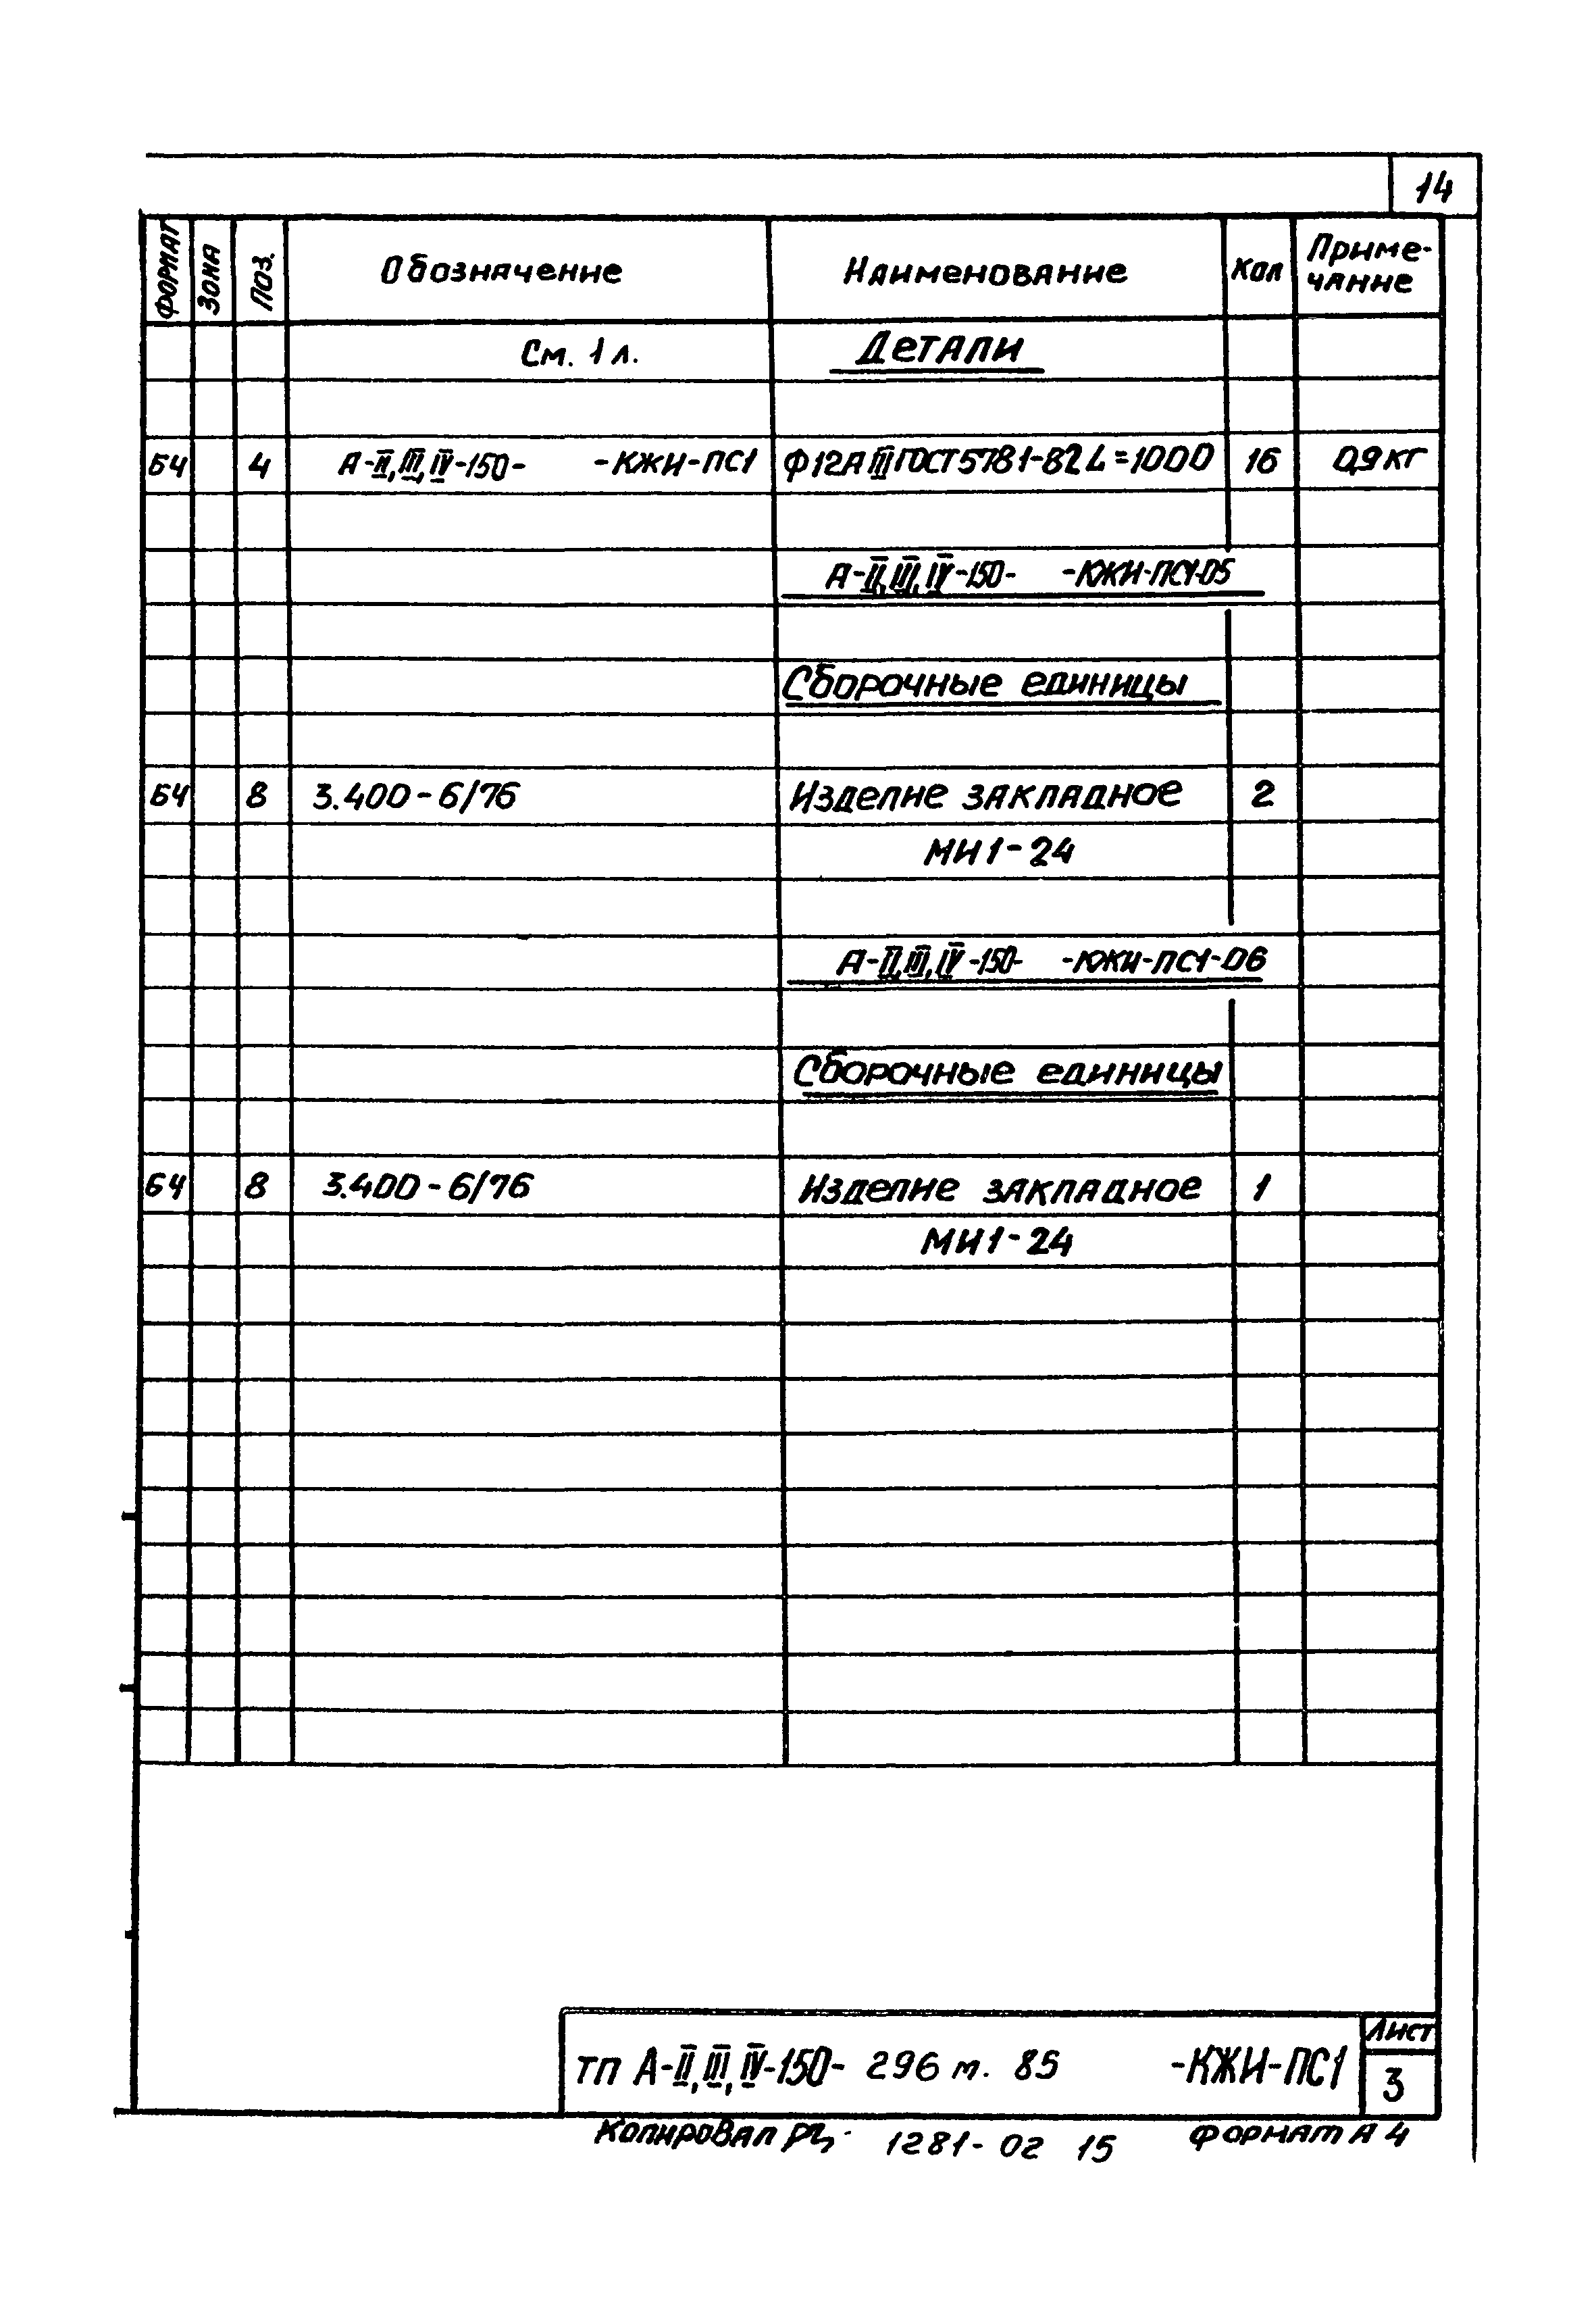 14
ФОРМАТ ЗОНА ПОЗ. Обозначение Наименование Кол Приме-
чание
См. 1 л. Детали
БЧ 4 А-II,III,IV-150- -КЖИ-ПС1 Ф12АIII ГОСТ5781-82 L=1000 16 0,9кг
А-II,III,IV-150- -КЖИ-ПС1-05
Сборочные единицы
БЧ 8 3.400-6/76 Изделие закладное 2
МИ1-24
А-II,III,IV-150- -КЖИ-ПС1-06
Сборочные единицы
БЧ 8 3.400-6/76 Изделие закладное 1
МИ1-24
ТП А-II,III,IV-150- 296 м. 85 -КЖИ-ПС1
Лист
3
Копировал 1281-02 15 Формат А4